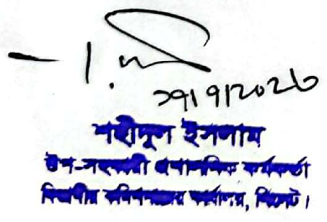 ২৭।৭।২০২৬
শহীদুল ইসলাম
উপ-সহকারী প্রশাসনিক কর্মকর্তা
বিভাগীয় কমিশনারের কার্যালয়, সিলেট।